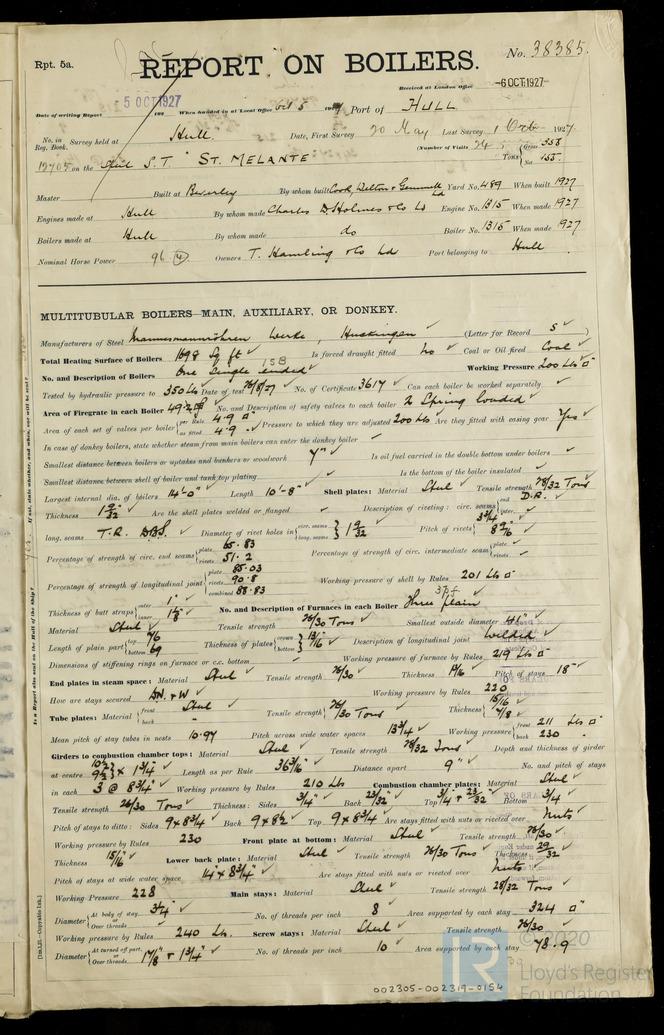 Rpt. 5a.
REPORT ON BOILERS.
No. 38385.
Received at London Office -6 OCT 1927
Date of writing Report 5 OCT 1927 192 When handed in at Local Office Oct 5 1927 Port of HULL
No. in Reg. Book. Survey held at Hull. Date, First Survey 20 May Last Survey 1 Octr 1927
(Number of Visits 24)
on the Steel S.T "ST. MELANTE" Tons { Gross 358 Net 155
Master Built at Beverley By whom built Cook, Welton & Gemmell Ld Yard No. 489 When built 1927
Engines made at Hull By whom made Charles D. Holmes & Co Ld Engine No. 1315 When made 1927
Boilers made at Hull By whom made do Boiler No. 1315 When made 1927
Nominal Horse Power 96 Owners T. Hamling & Co Ld Port belonging to Hull
MULTITUBULAR BOILERS—MAIN, AUXILIARY, OR DONKEY.
Manufacturers of Steel Mannesmannröhren Werke, Huckingen (Letter for Record S)
Total Heating Surface of Boilers 1698 Sq ft Is forced draught fitted No Coal or Oil fired Coal
No. and Description of Boilers One Single ended 15B Working Pressure 200 Lbs
Tested by hydraulic pressure to 350 Lbs Date of test 26/8/27 No. of Certificate 3617 Can each boiler be worked separately
Area of Firegrate in each Boiler 49.2 No. and Description of safety valves to each boiler 2 Spring loaded
Area of each set of valves per boiler { per Rule 4.9 as fitted 4.9 Pressure to which they are adjusted 200 Lbs Are they fitted with easing gear Yes
In case of donkey boilers, state whether steam from main boilers can enter the donkey boiler
Smallest distance between boilers or uptakes and bunkers or woodwork Is oil fuel carried in the double bottom under boilers
Smallest distance between shell of boiler and tank top plating Is the bottom of the boiler insulated
Largest internal dia. of boilers 14'-0" Length 10'-8" Shell plates: Material Steel Tensile strength 28/32 Tons
Thickness 1 9/32 Are the shell plates welded or flanged Description of riveting: circ. seams { end D.R. inter.
long. seams T.R. D.B.S. Diameter of rivet holes in { circ. seams long. seams } 1 9/32 Pitch of rivets { 3 3/4 8 9/16
Percentage of strength of circ. end seams { plate 65.83 rivets 51.2 Percentage of strength of circ. intermediate seam { plate rivets
Percentage of strength of longitudinal joint { plate 85.03 rivets 90.8 combined 88.83 Working pressure of shell by Rules 201 Lbs
Thickness of butt straps { outer 1" inner 1 1/8 No. and Description of Furnaces in each Boiler Three plain
Material Steel Tensile strength 26/30 Tons Smallest outside diameter 41"
Length of plain part { top 76 bottom 69 Thickness of plates { crown bottom } 13/16 Description of longitudinal joint Welded
Dimensions of stiffening rings on furnace or c.c. bottom Working pressure of furnace by Rules 219 Lbs
End plates in steam space: Material Steel Tensile strength 26/30 Thickness 1 1/16 Pitch of stays 18"
How are stays secured D.N. & W Working pressure by Rules 220
Tube plates: Material { front Steel back " Tensile strength { 26/30 Tons Thickness { 15/16 7/8
Mean pitch of stay tubes in nests 10.97 Pitch across wide water spaces 13 3/4 Working pressure { front 211 Lbs back 230
Girders to combustion chamber tops: Material Steel Tensile strength 28/32 Tons Depth and thickness of girder
at centre 10 1/2 9 1/2 } x 1 3/4" Length as per Rule 36 3/16" Distance apart 9" No. and pitch of stays
in each 3 @ 8 3/4" Working pressure by Rules 210 Lbs Combustion chamber plates: Material Steel
Tensile strength 26/30 Tons Thickness: Sides 3/4" Back 23/32 Top 3/4 & 23/32 Bottom 3/4
Pitch of stays to ditto: Sides 9 x 8 3/4 Back 9 x 8 1/2 Top 9 x 8 3/4 Are stays fitted with nuts or riveted over nuts
Working pressure by Rules 230 Front plate at bottom: Material Steel Tensile strength 26/30
Thickness 15/16" Lower back plate: Material Steel Tensile strength 26/30 Tons Thickness 29/32
Pitch of stays at wide water space 14" x 8 3/4" Are stays fitted with nuts or riveted over nuts
Working Pressure 228 Main stays: Material Steel Tensile strength 28/32 Tons
Diameter { At body of stay, or Over threads 3 1/4" No. of threads per inch 8 Area supported by each stay 324
Working pressure by Rules 240 Lb. Screw stays: Material Steel Tensile strength 26/30
Diameter { At turned off part, or Over threads 1 7/8" & 1 3/4" No. of threads per inch 10 Area supported by each stay 78.9
Is a Report also sent on the Hull of the Ship?
If not, state whether, and when, one will be sent?
002305-002319-0154
© 2020
LR
Lloyd's Register
Foundation